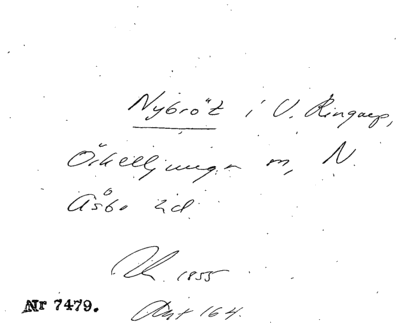 Nybröt i V. Ringarp,
Örkelljunga sn, N.
Åsbo hd
1855
Nr 7479.
164.